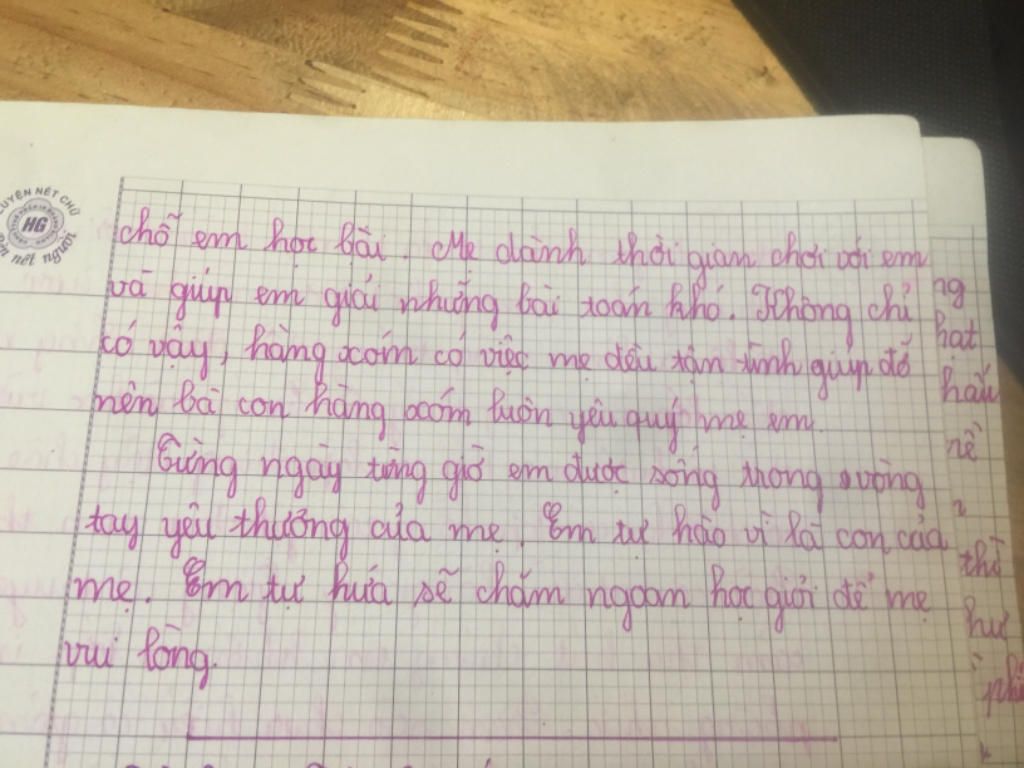 LUYỆN NÉT CHỮ
HG
nét người
chỗ em học bài. Mẹ dành thời gian chơi với em
và giúp em giải những bài toán khó. Không chỉ
có vậy, hàng xóm có việc mẹ đều tận tình giúp đỡ
nên bà con hàng xóm luôn yêu quý mẹ em.
Từng ngày từng giờ em được sống trong vòng
tay yêu thương của mẹ. Em tự hào vì là con của
mẹ. Em tự hứa sẽ chăm ngoan học giỏi để mẹ
vui lòng.
ng
hạt
hấu
nề
thờ
hư